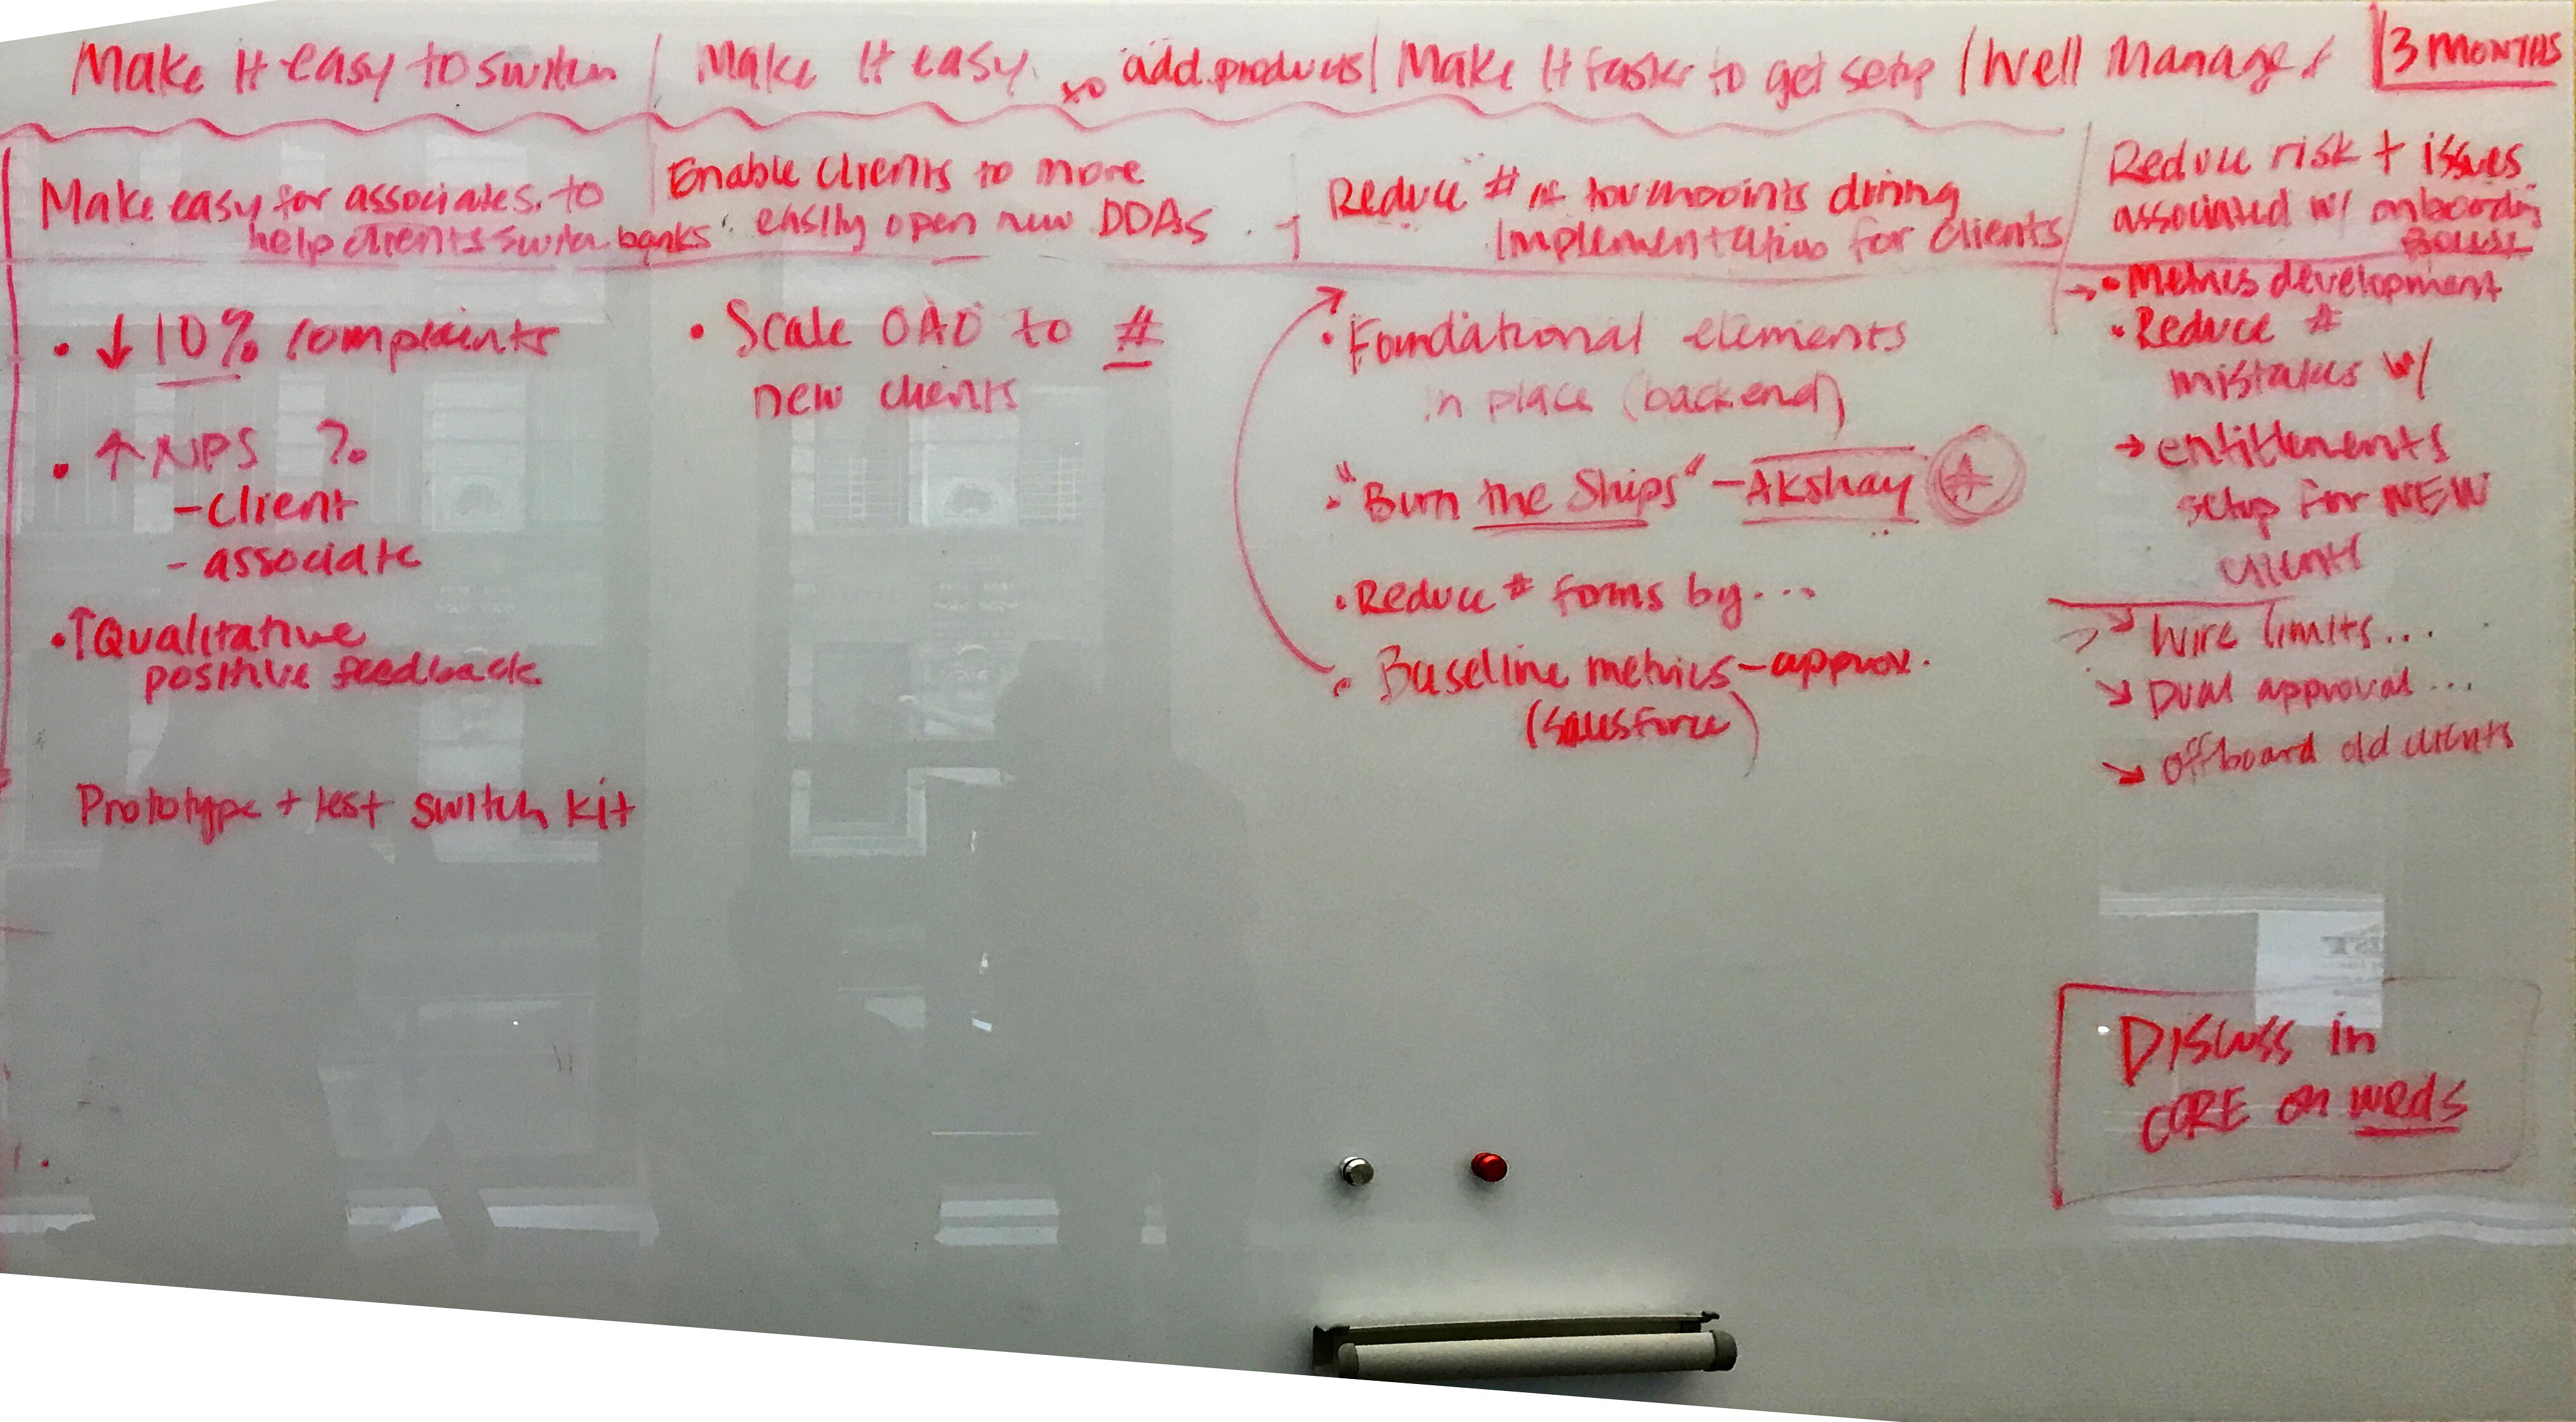 Make It easy to switch
Make it easy to add products
Make It faster to get setup
Well Managed
3 MONTHS
Make easy for associates to
help clients switch banks
Enable clients to more
easily open new DDAs
Reduce # of touchpoints during
Implementation for clients
Reduce risk + issues
associated w/ onboarding
• ↓ 10% complaints
• ↑ NPS ?
- client
- associate
• ↑ Qualitative
positive feedback
Prototype + test switch kit
• Scale OAO to #
new clients
• Foundational elements
in place (backend)
• "Burn the Ships" - Akshay
• Reduce # forms by...
• Baseline metrics - approx.
(Salesforce)
→ • Metrics development
• Reduce #
mistakes w/
→ entitlements
setup for NEW
clients
→ Wire limits...
→ Dual approval...
→ offboard old clients
Discuss in
CORE on weds